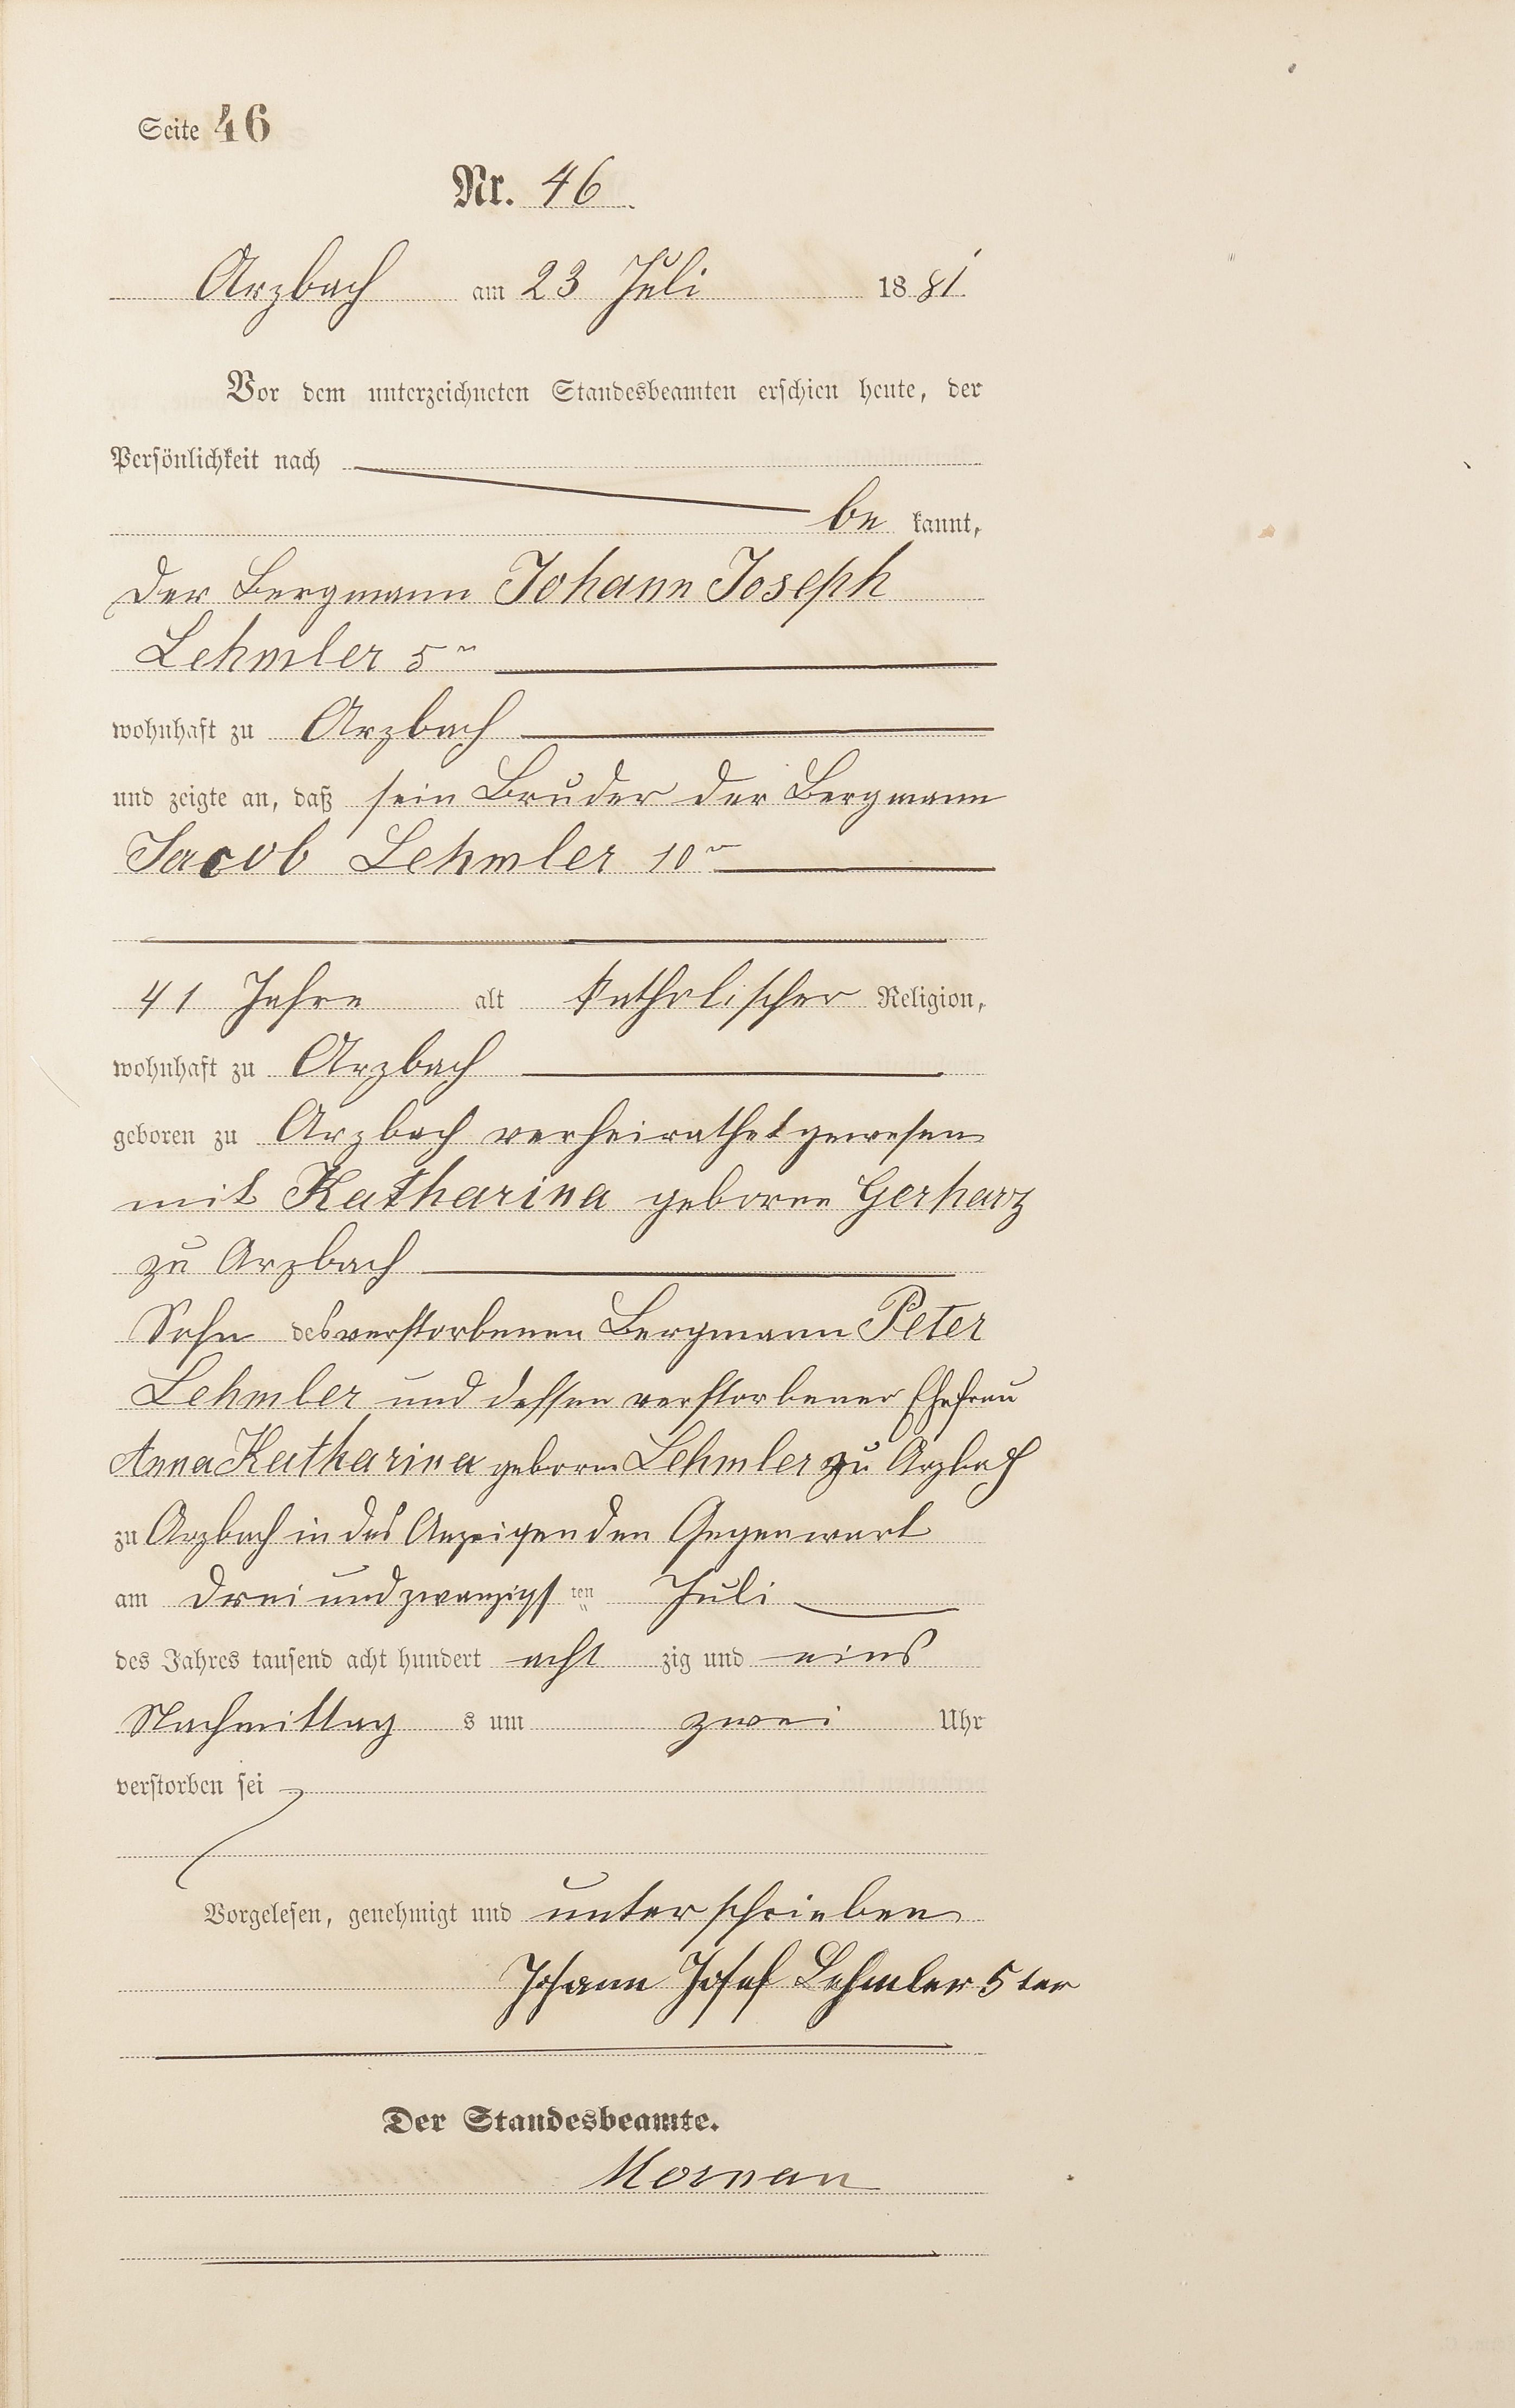 Seite 46
Nr. 46
Arzbach am 23 Juli 1881
Vor dem unterzeichneten Standesbeamten erschien heute, der
Persönlichkeit nach
be kannt,
der Bergmann Johann Joseph
Lehmler 5r
wohnhaft zu Arzbach
und zeigte an, daß sein Bruder der Bergmann
Jacob Lehmler 10r
41 Jahre alt katholischer Religion,
wohnhaft zu Arzbach
geboren zu Arzbach verheirathet gewesen
mit Katharina geborne Gerharz
zu Arzbach
Sohn des verstorbenen Bergmann Peter
Lehmler und dessen verstorbener Ehefrau
Anna Katharina geborne Lehmler zu Arzbach
zu Arzbach in des Anzeigenden Gegenwart
am dreiundzwanzigsten Juli
des Jahres tausend acht hundert acht zig und eins
Nachmittag s um zwei Uhr
verstorben sei
Vorgelesen, genehmigt und unterschrieben
Johann Josef Lehmler 5ter
Der Standesbeamte.